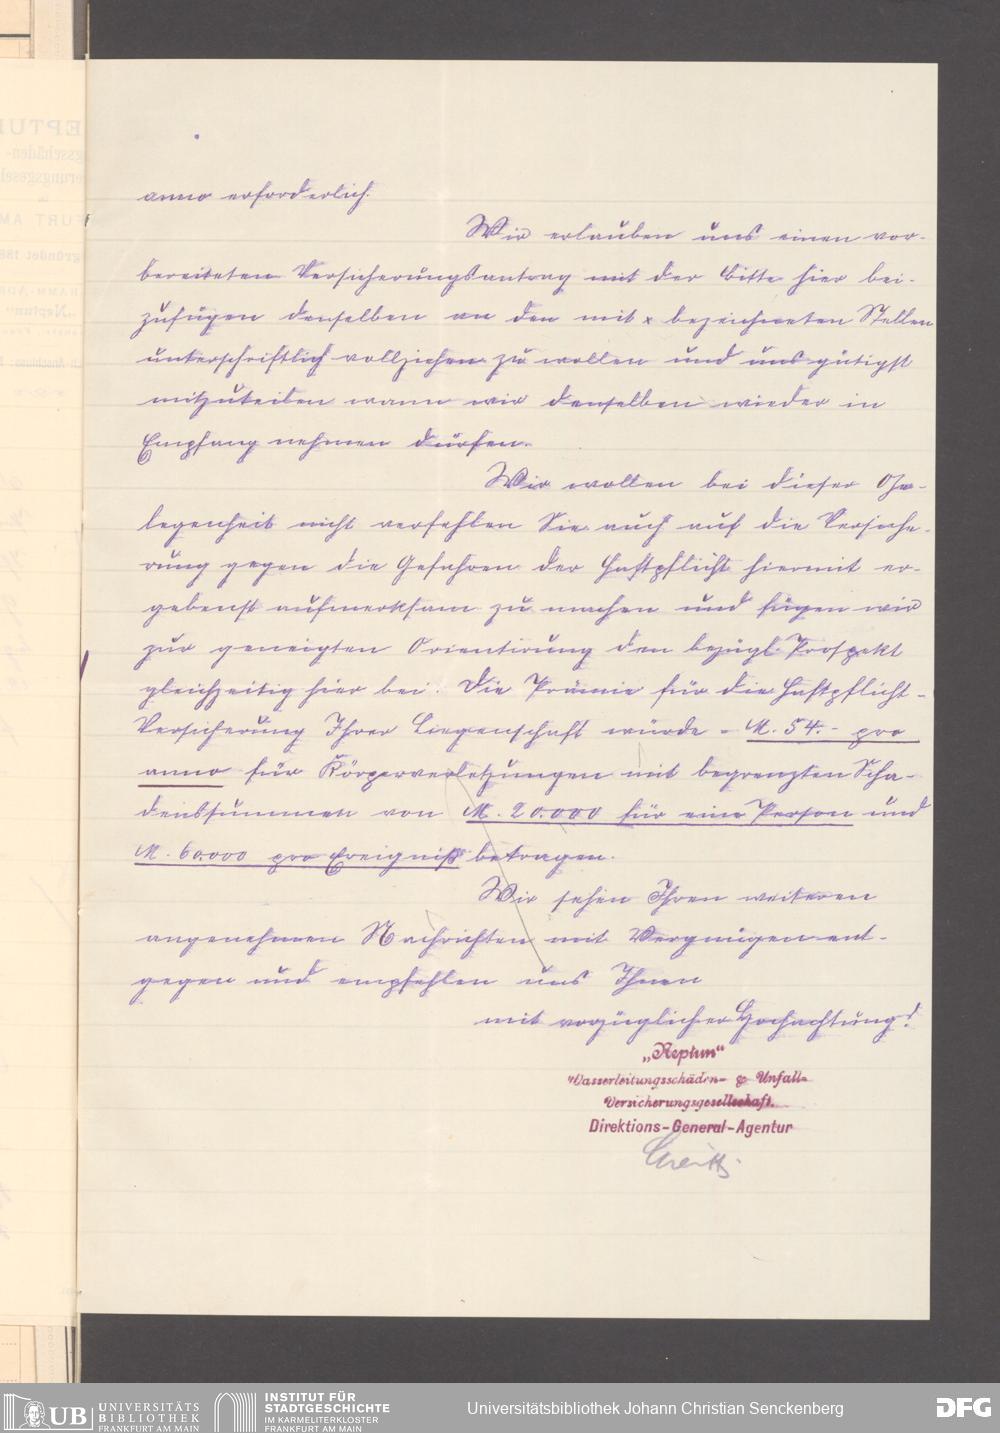 anno erforderlich.
Wir erlauben uns einen vor-
bereiteten Versicherungsantrag mit der Bitte hier bei-
zufügen denselben an den mit x bezeichneten Stellen
unterschriftlich vollziehen zu wollen und uns gütigst
mitzuteilen wann wir denselben wieder in
Empfang nehmen dürfen.
Wir wollen bei dieser Ge-
legenheit nicht verfehlen Sie auch auf die Versiche-
rung gegen die Gefahren der Haftpflicht hiermit er-
gebenst aufmerksam zu machen und fügen wir
zur geneigten Orientirung den bezügl. Prospekt
gleichzeitig hier bei. Die Prämie für die Haftpflicht-
Versicherung Ihrer Liegenschaft würde - M. 54.- pro
anno für Körperverletzungen mit begrenzten Scha-
denssummen von M. 20.000 für eine Person und
M. 60.000 pro Ereigniß betragen.
Wir sehen Ihren weiteren
angenehmen Nachrichten mit Vergnügen ent-
gegen und empfehlen uns Ihnen
mit vorzüglicher Hochachtung!
„Neptun"
Wasserleitungsschäden- & Unfall-
Versicherungsgesellschaft.
Direktions-General-Agentur
UB UNIVERSITÄTS
BIBLIOTHEK
FRANKFURT AM MAIN
INSTITUT FÜR
STADTGESCHICHTE
IM KARMELITERKLOSTER
FRANKFURT AM MAIN
Universitätsbibliothek Johann Christian Senckenberg
DFG